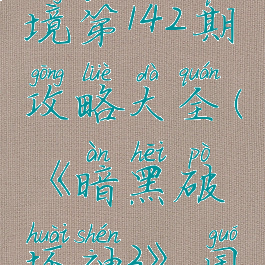 境第142期
gōng lüè dà quán
攻略大全(
àn hēi pò
《暗黑破
huài shén guó
坏神3》国